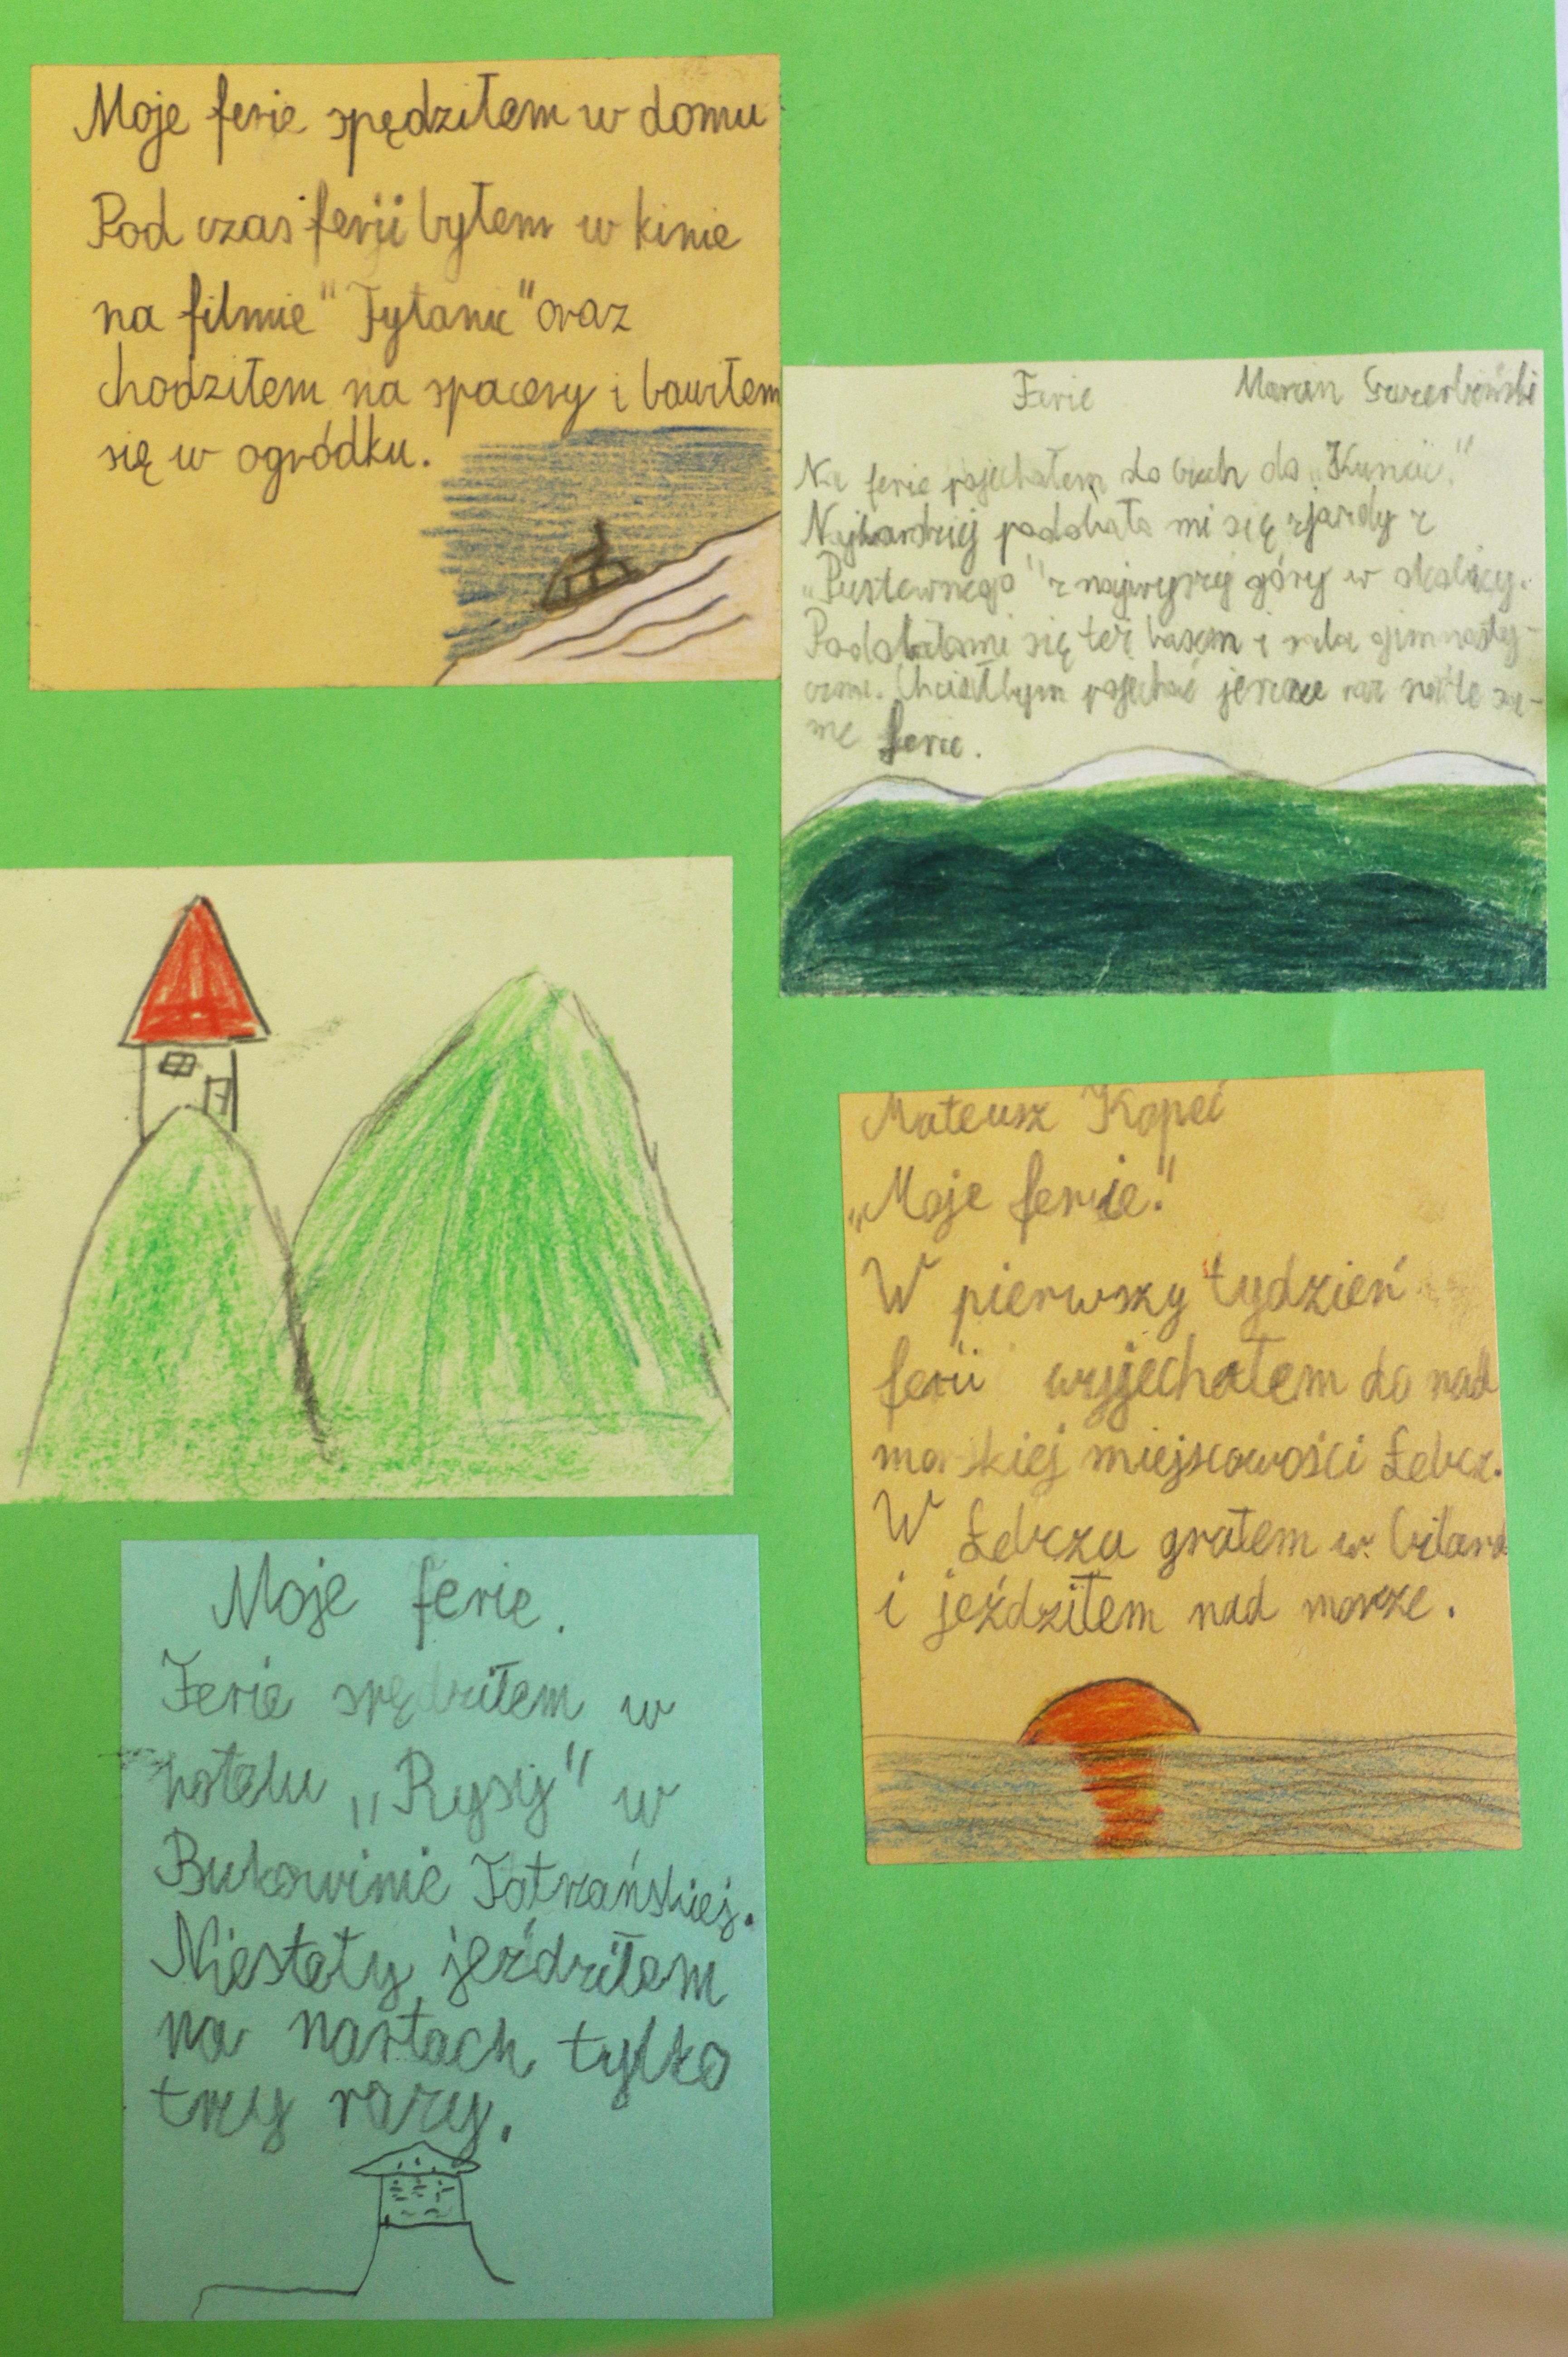 Moje ferie spędziłem w domu
Pod czas ferii byłem w kinie
na filmie "Tytanic" oraz
chodziłem na spacery i bawiłem
się w ogródku.
Ferie Marcin
Na ferie pojechałem do do
Najbardziej podobało mi się zjazdy z
z najwyszej góry w okolicy.
mi się też basen i sala gimnasty-
czna. Chciałbym pojechać jeszcze raz na te sa-
me ferie.
Mateusz Kopeć
„Moje ferie."
W pierwszy tydzień
ferii wyjechałem do nad
morskiej miejscowości Łebcz.
W Łebczu grałem w bilard
i jeździłem nad morze.
Moje ferie.
Ferie spędziłem w
hotelu „Rysy" w
Bukowinie Tatrzańskiej.
Niestety jeździłem
na nartach tylko
trzy razy.